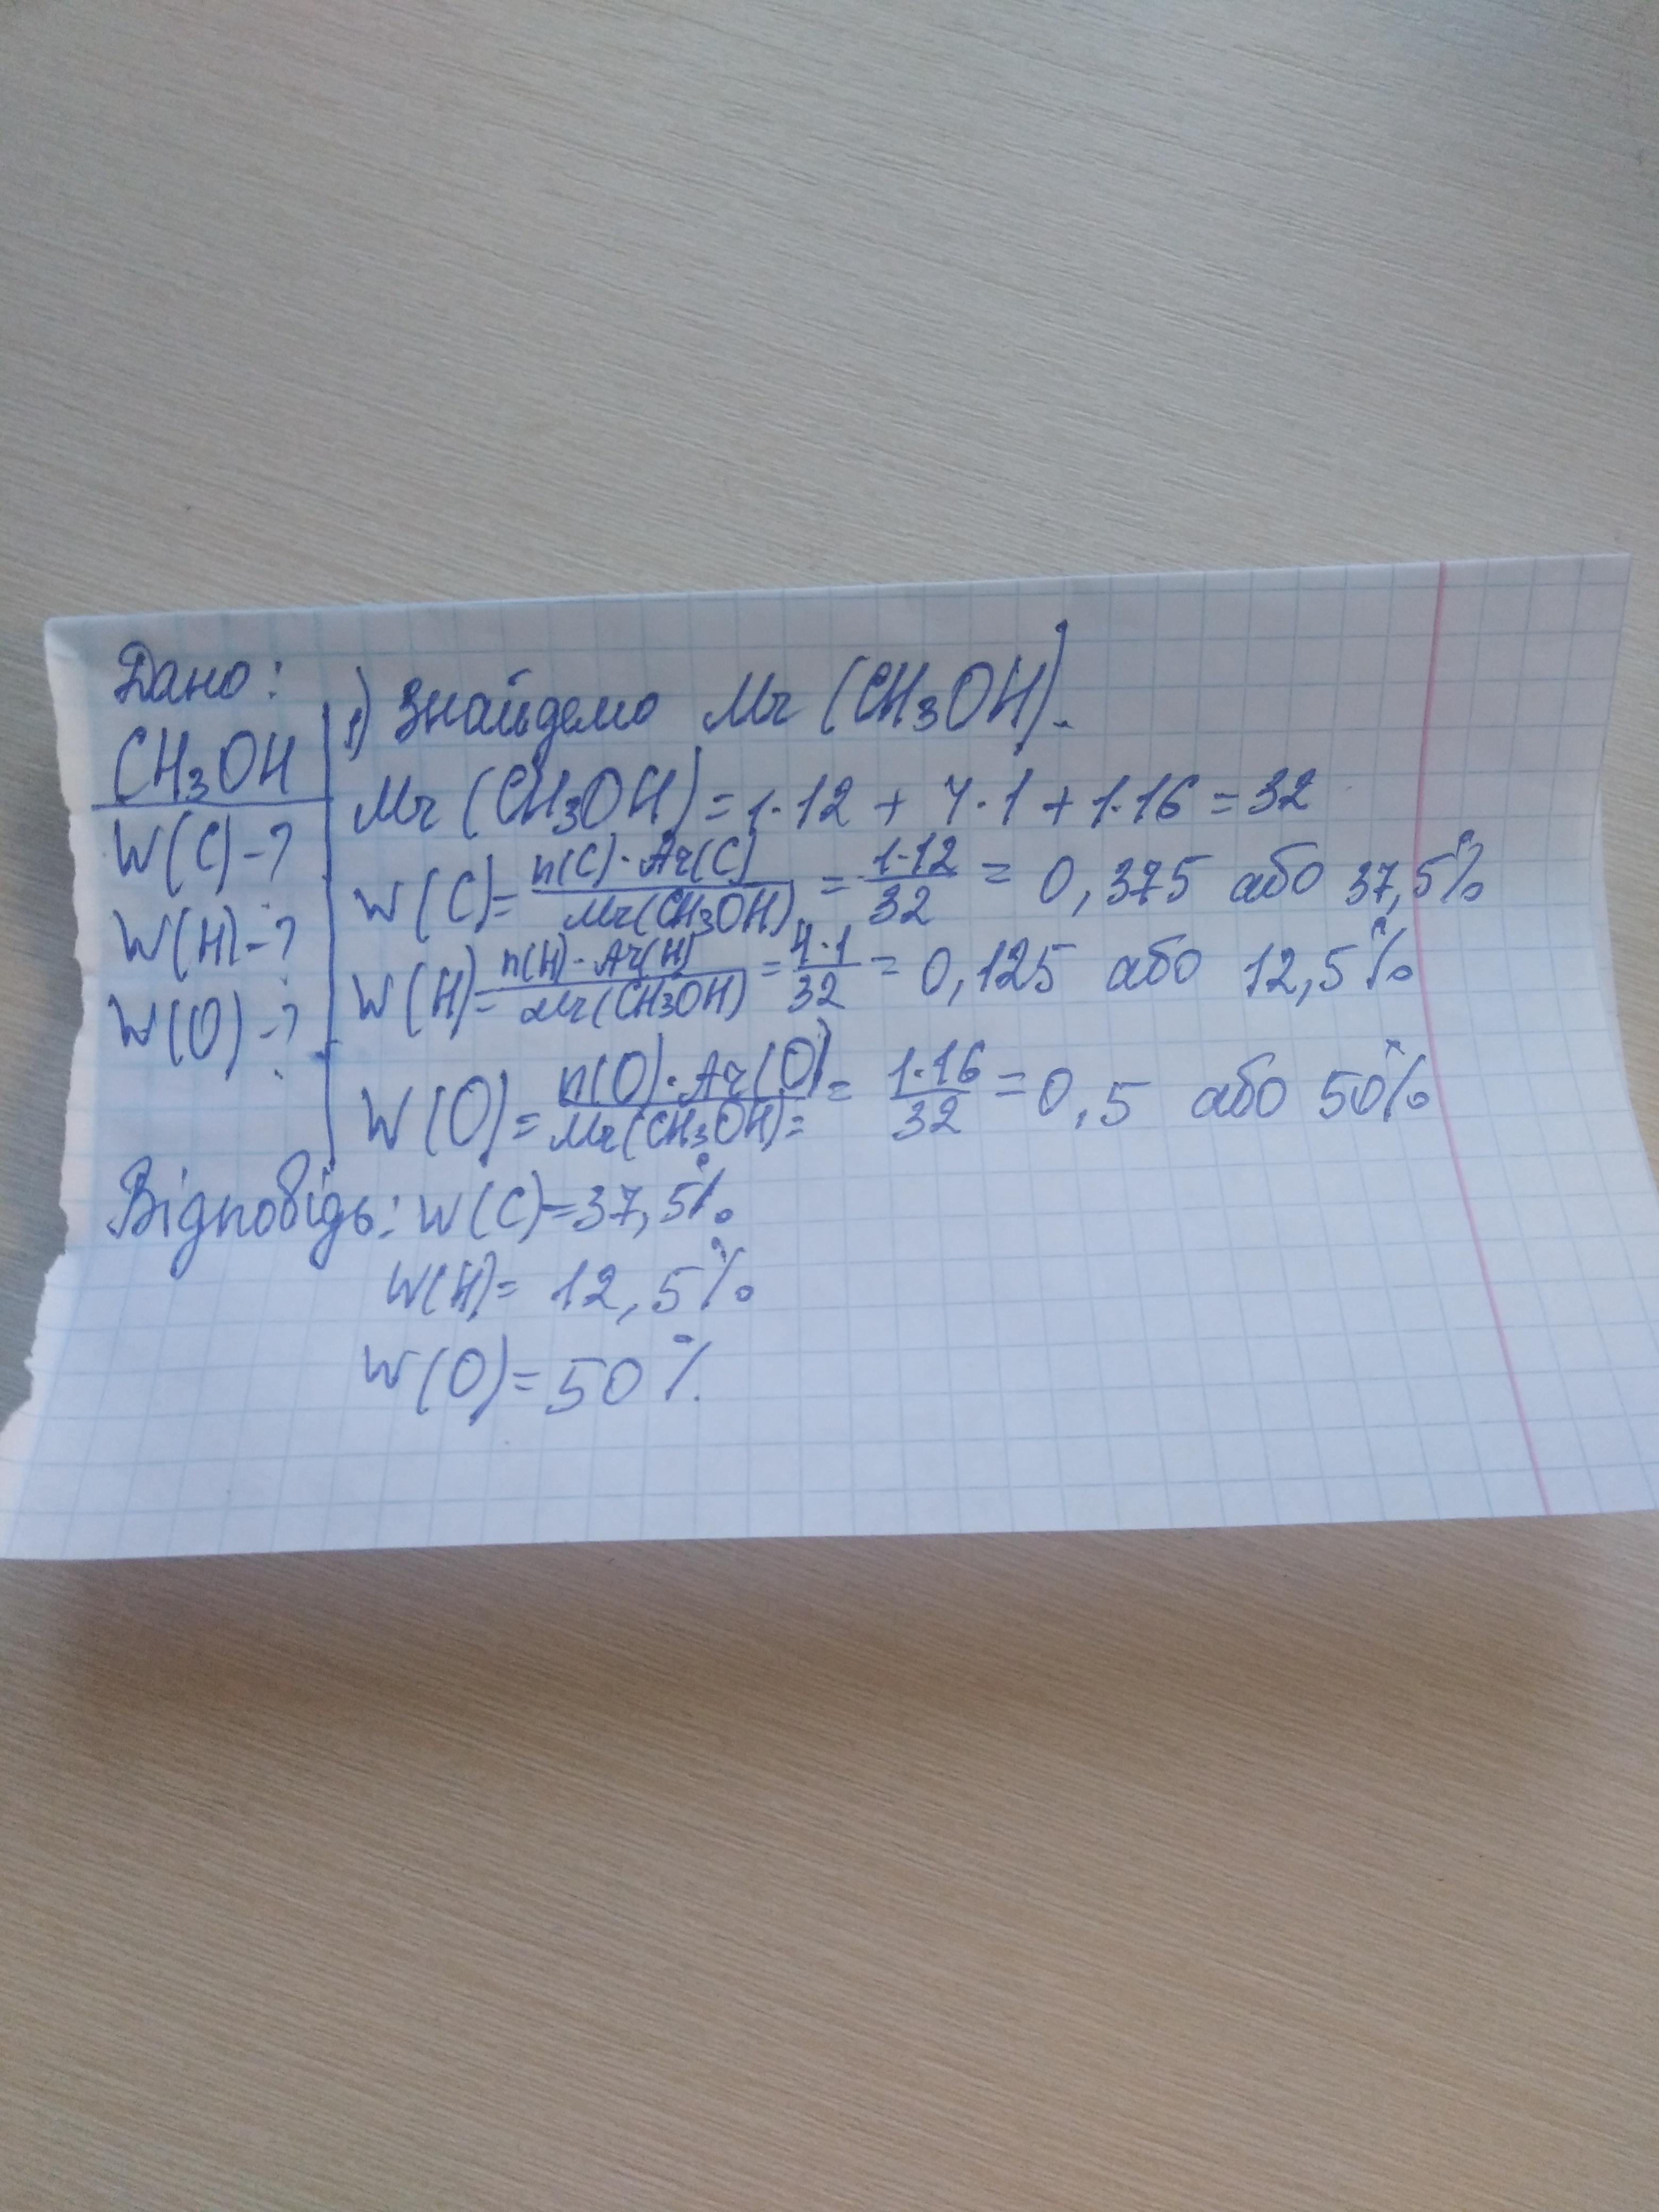 Дано:
CH₃OH
W(C)-?
W(H)-?
W(O)-?
1) Знайдемо Mr (CH₃OH).
Mr (CH₃OH) = 1·12 + 4·1 + 1·16 = 32
W(C) = n(C)·Ar(C) / Mr(CH₃OH) = 1·12 / 32 = 0,375 або 37,5%
W(H) = n(H)·Ar(H) / Mr(CH₃OH) = 4·1 / 32 = 0,125 або 12,5%
W(O) = n(O)·Ar(O) / Mr(CH₃OH) = = 1·16 / 32 = 0,5 або 50%
Відповідь: W(C)=37,5%
W(H)= 12,5%
W(O)=50%.